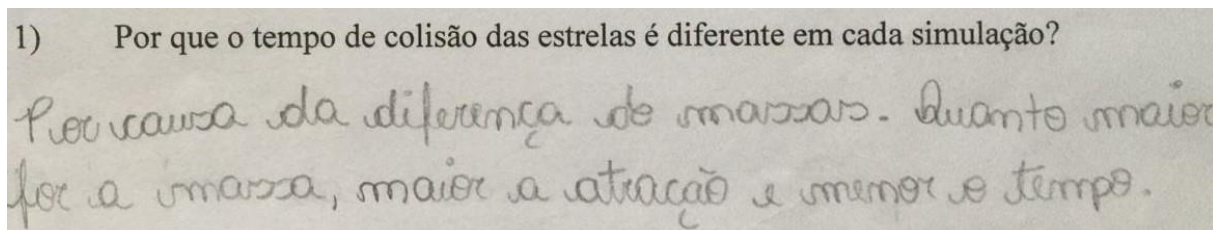 1) Por que o tempo de colisão das estrelas é diferente em cada simulação?
Por causa da diferença de massas. Quanto maior
for a massa, maior a atração e menor o tempo.